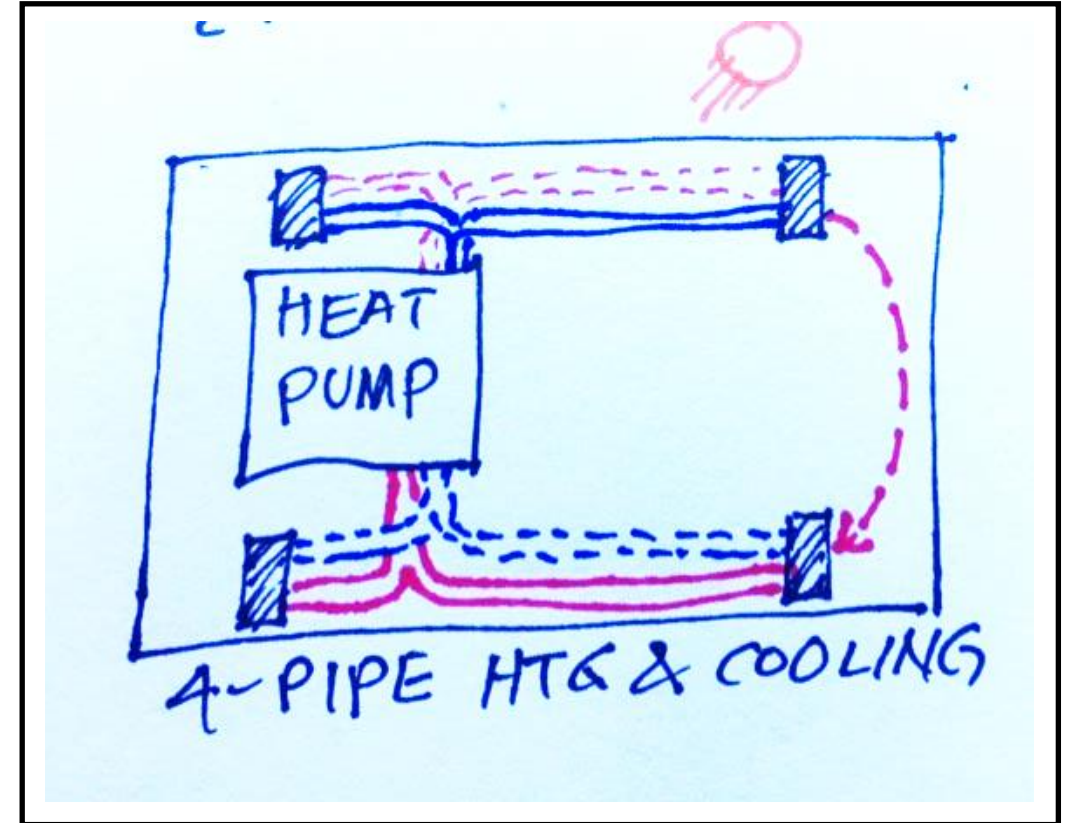 HEAT
PUMP
4-PIPE HTG & COOLING